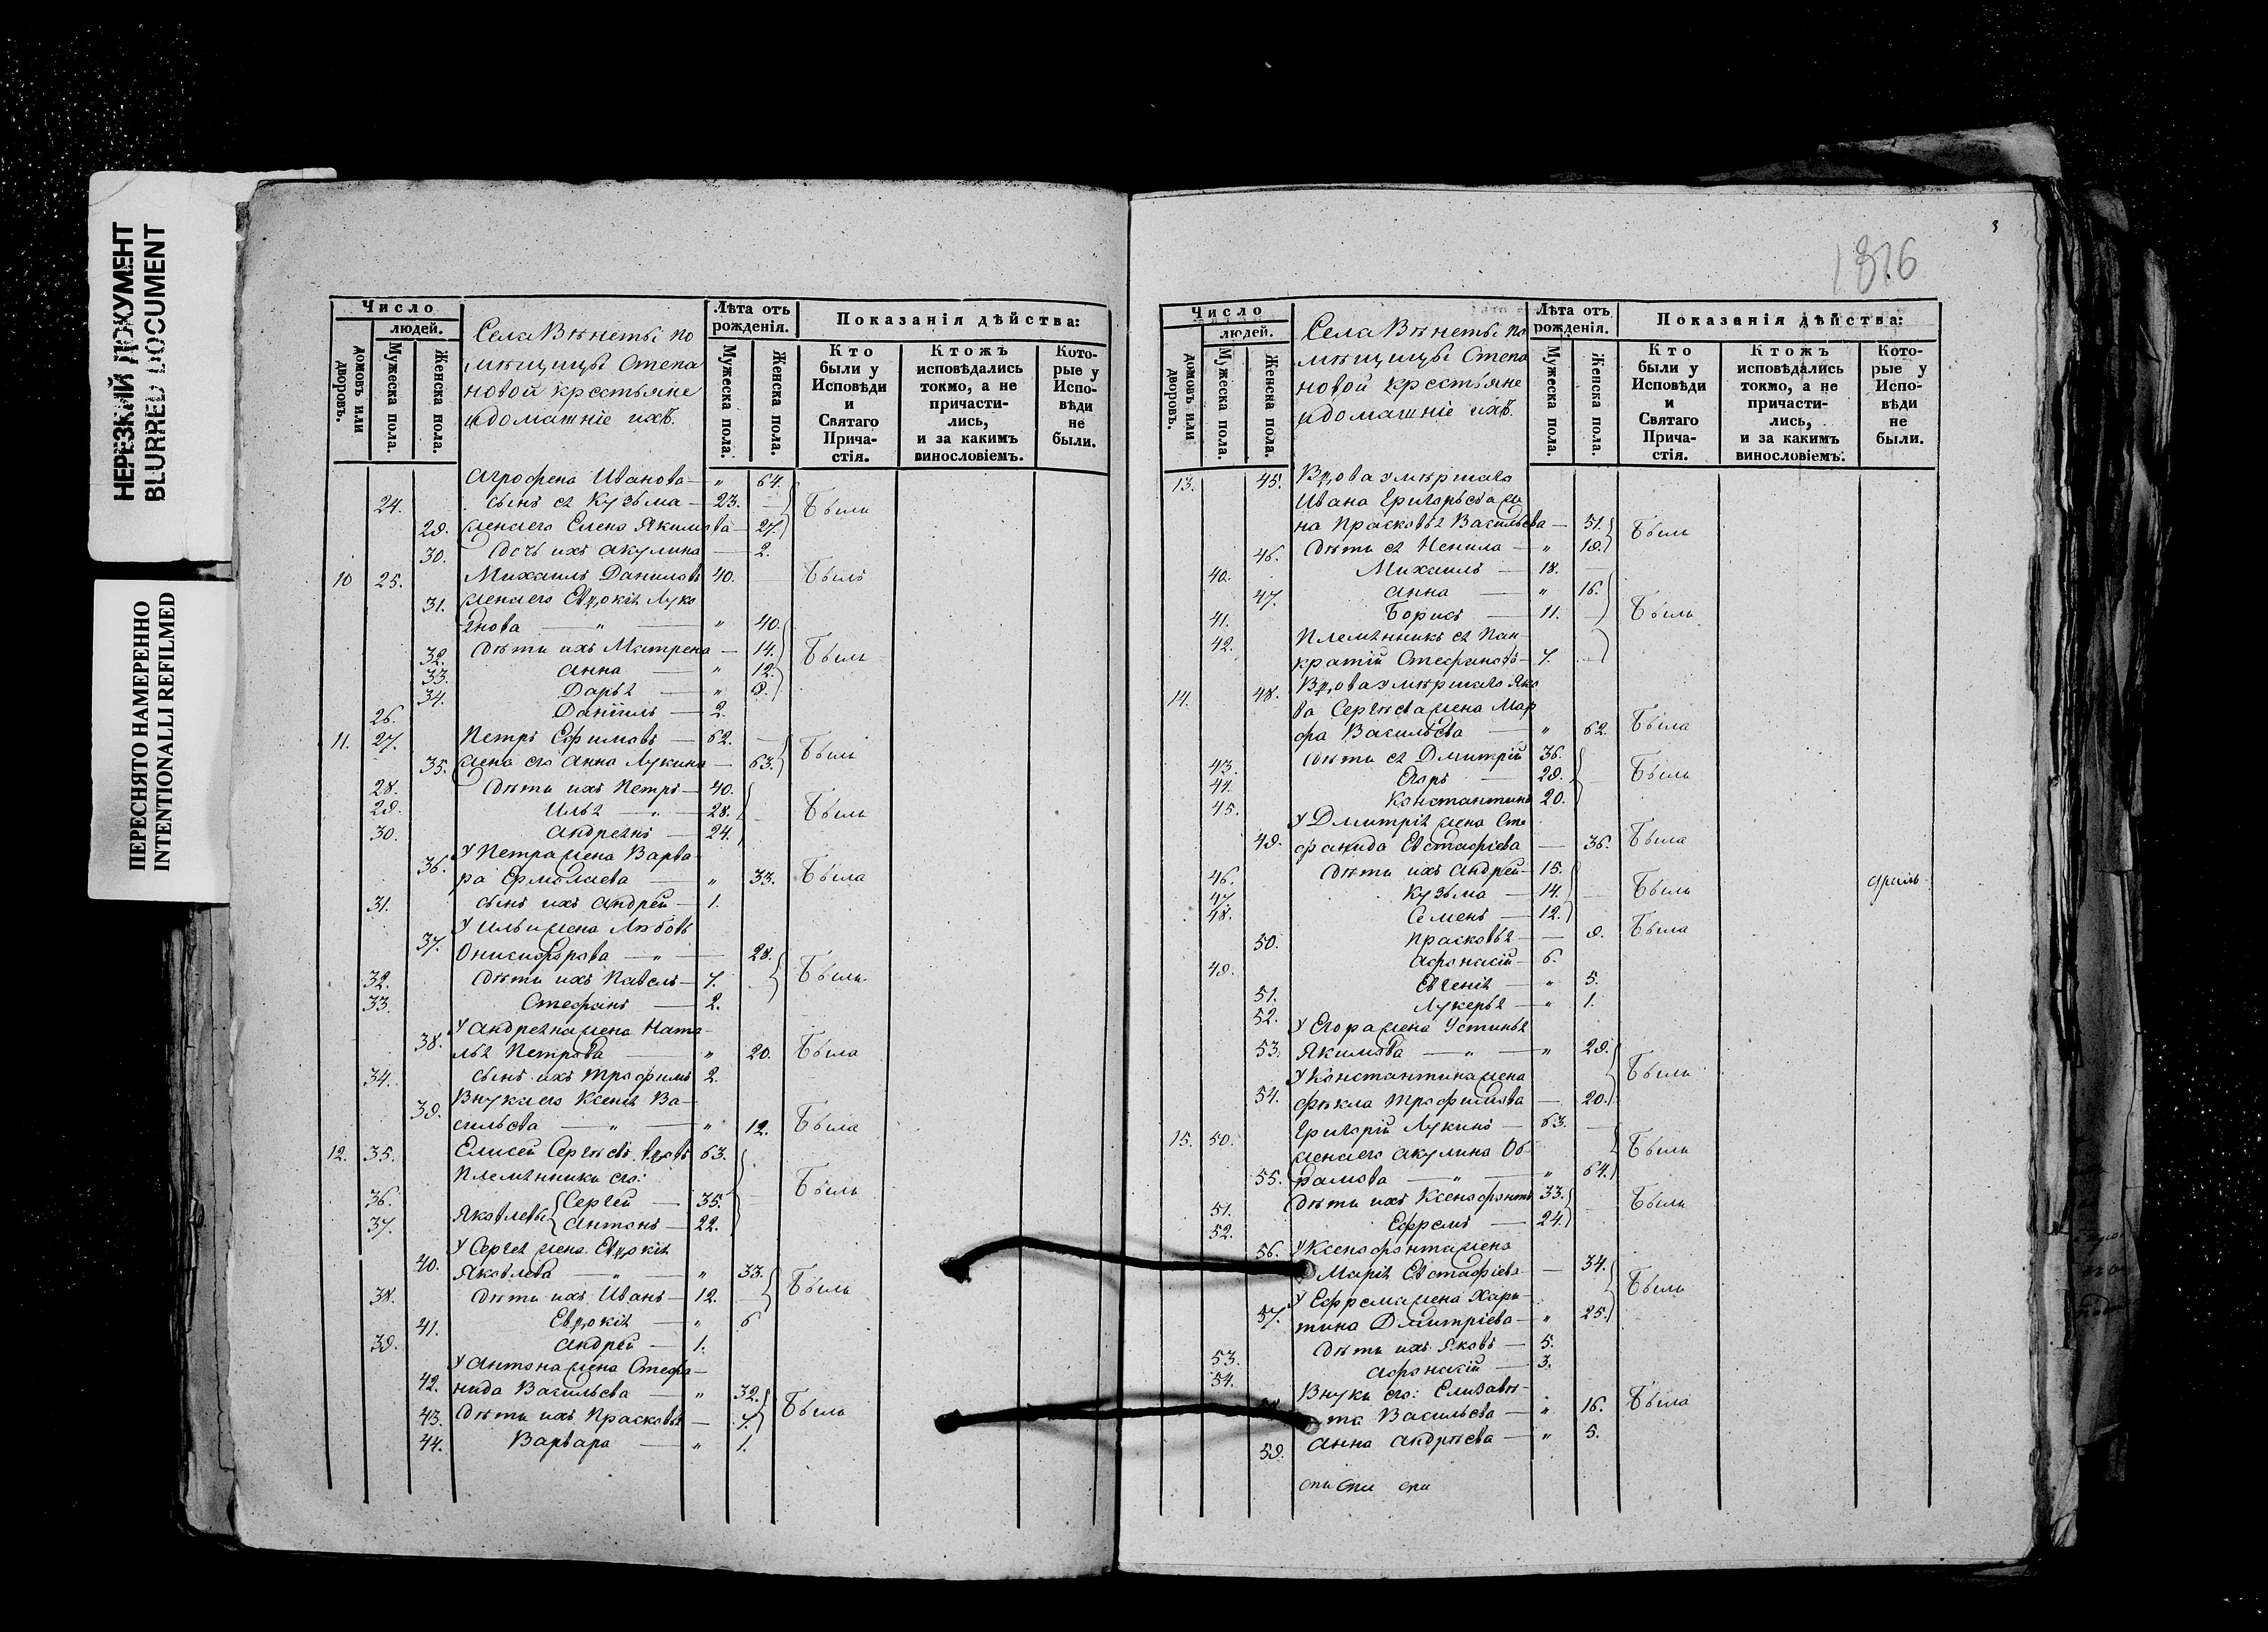 НЕРЕЗКИЙ ДОКУМЕНТ
BLURRED DOCUMENT
ПЕРЕСНЯТО НАМЕРЕННО
INTENTIONALLI REFILMED
Число
людей.
домовъ или дворовъ.
Мужеска пола.
Женска пола.
Села Вѣнеты по
мѣщицы Степа
новой крестьяне
и домашніе ихъ.
Лѣта отъ рожденія.
Мужеска пола.
Женска пола.
Показанія дѣйства:
Кто были у Исповѣди и Святаго Прича-стія.
Ктожъ исповѣдались токмо, а не причасти-лись, и за какимъ винословіемъ.
Кото-рые у Испо-вѣди не были.
Агрофена Иванова — " 64.
24. сынъ ея Кузьма — 23. — Были
29. жена его Елена Якимова — 27.
30. Дочь ихъ Акулина — 2.
10 25. Михаилъ Даниловъ 40. Былъ
31. жена его Евдокія Лукі
янова — " — " 40.
32. Дѣти ихъ Матрена — 14. Были
33. Анна — " 12.
34. Дарья — " 9.
26. Даніилъ — 2.
11. 27. Петръ Ефимовъ — 62. — Были
35. жена его Анна Лукина — 63.
28. Дѣти ихъ Петръ — 40.
29. Илья — " — 28. — Были
30. Андреянъ — 24.
У Петра жена Варва
36. ра Ермолаева — " 33. Была
31. сынъ ихъ Андрей — 1.
У Ильи жена Любовь
37. Онисифорова — " — 28.
32. Дѣти ихъ Павелъ — 7. Были
33. Стефанъ — 2.
У Андреяна жена Ната-
38. лья Петрова — " 20. Была
34. сынъ ихъ Трофимъ 2.
Внука его Ксенія Ва-
39. сильева — " — " 12. Была
12. 35. Елисей Сергѣевъ вдовъ 63.
Племянники его: Были
36. Яковлевы Сергей — 35.
37. Антонъ — 22.
У Сергея жена Евдокія
40. Яковлева — " — " 33.
38. Дѣти ихъ Иванъ — 12. Были
41. Евдокія — " 6
39. Андрей — 1.
У Антона жена Стефа-
42. нида Васильева — " 32.
43. Дѣти ихъ Прасковья — 7. Были
44. Варвара — " 1.
3
1826
Число
людей.
домовъ или дворовъ.
Мужеска пола.
Женска пола.
Села Вѣнеты по
мѣщицы Степа
новой крестьяне
и домашніе ихъ.
Лѣта отъ рожденія.
Мужеска пола.
Женска пола.
Показанія дѣйства:
Кто были у Исповѣди и Святаго Прича-стія.
Ктожъ исповѣдались токмо, а не причасти-лись, и за какимъ винословіемъ.
Кото-рые у Испо-вѣди не были.
13. 45. Вдова умѣршаго
Ивана Григорьева же
на Прасковья Васильева — 51. Были
46. Дѣти ея Ненила — " 19.
40. Михаилъ — 18. —
47. Анна — " 16.
41. Борисъ — 11. — Были
42. Племянникъ ея Пан-
кратій Стефановъ — 7.
14. 48. Вдова умѣршаго Яко
ва Сергѣева жена Мар
фа Васильева — " 62. Была
43. Дѣти ея Дмитрій 36.
44. Егоръ — 29. — Были
45. Константинъ 20.
У Дмитрія жена Сте
49. фанида Евстафіева — 36. Была
46. Дѣти ихъ Андрей — 15.
47. Кузьма — 14. — Были
48. Семенъ — 12.
50. Прасковья — 9. Была
49. Афонасій — 6.
51. Евгенія — " 5.
52. Лукерья — " 1.
У Егора жена Устинья
53. Якимова — " — " 29.
У Константина жена Были
54. Фѣкла Трофимова — 20.
15. 50. Григорій Лукинъ — 63. —
жена его Акулина Об- Были
55. рамова — " — " 64.
51. Дѣти ихъ Ксенофонтъ 33. Были
52. Ефремъ — 24.
56. У Ксенофонта жена
Марія Евстафіева — 34.
У Ефрема жена Хари- Были
57. тина Дмитріева — " 25.
53. Дѣти ихъ Яковъ — 5.
54. Афонасій — 3.
Внуки его: Елизавѣ-
та Васильева — " 16. Была
59. Анна Андрѣева — " 5.